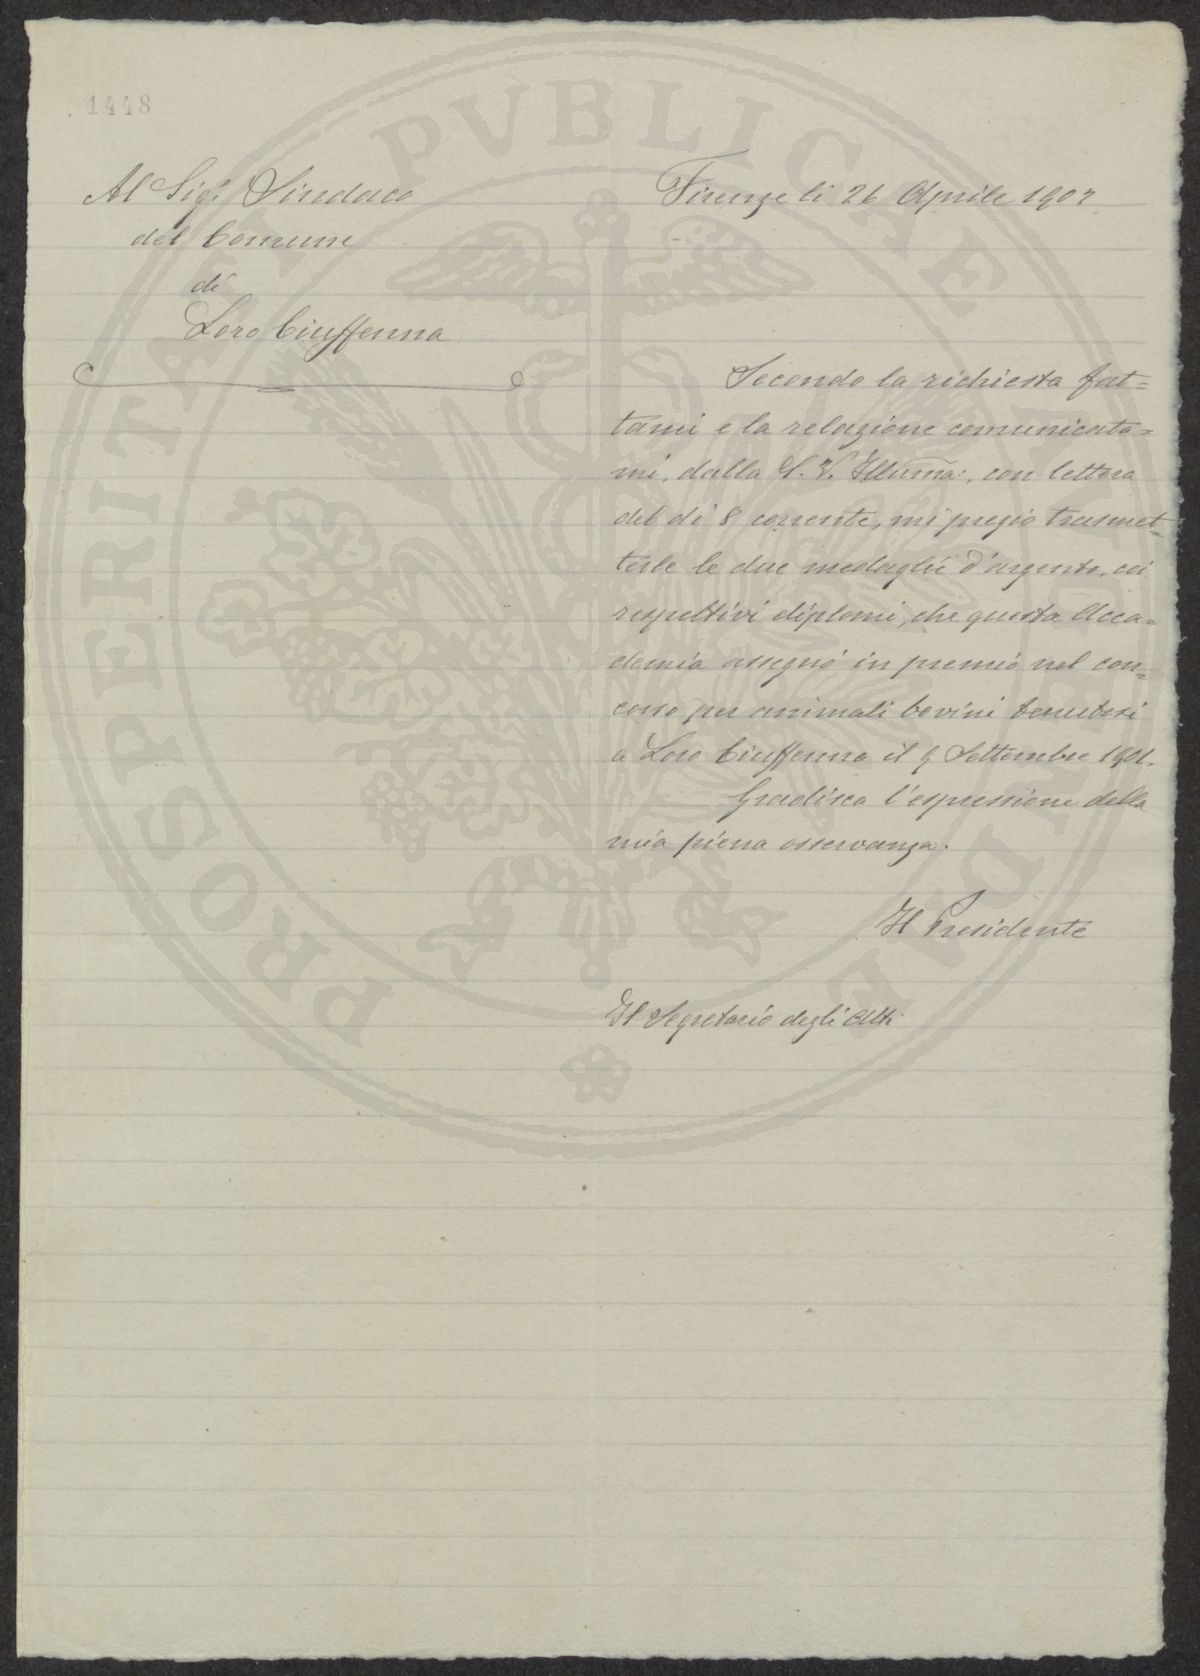 1448
Al Sigr. Sindaco
del Comune
di
Loro Ciuffenna
Firenze li 26 Aprile 1902
Secondo la richiesta fat=
tami e la relazione comunicata=
mi, dalla S. V. Illuma:, con lettera
del dì 8 corrente, mi pregio trasmet=
terle le due medaglie d'argento, coi
respettivi diplomi, che questa Acca=
demia assegnò in premio nel con=
corso per animali bovini tenutosi
a Loro Ciuffenna il 9 Settembre 1901.
Gradisca l'espressione della
mia piena osservanza.
Il Presidente
Il Segretario degli Atti
PROSPERITATI PVBLICAE AVGENDAE